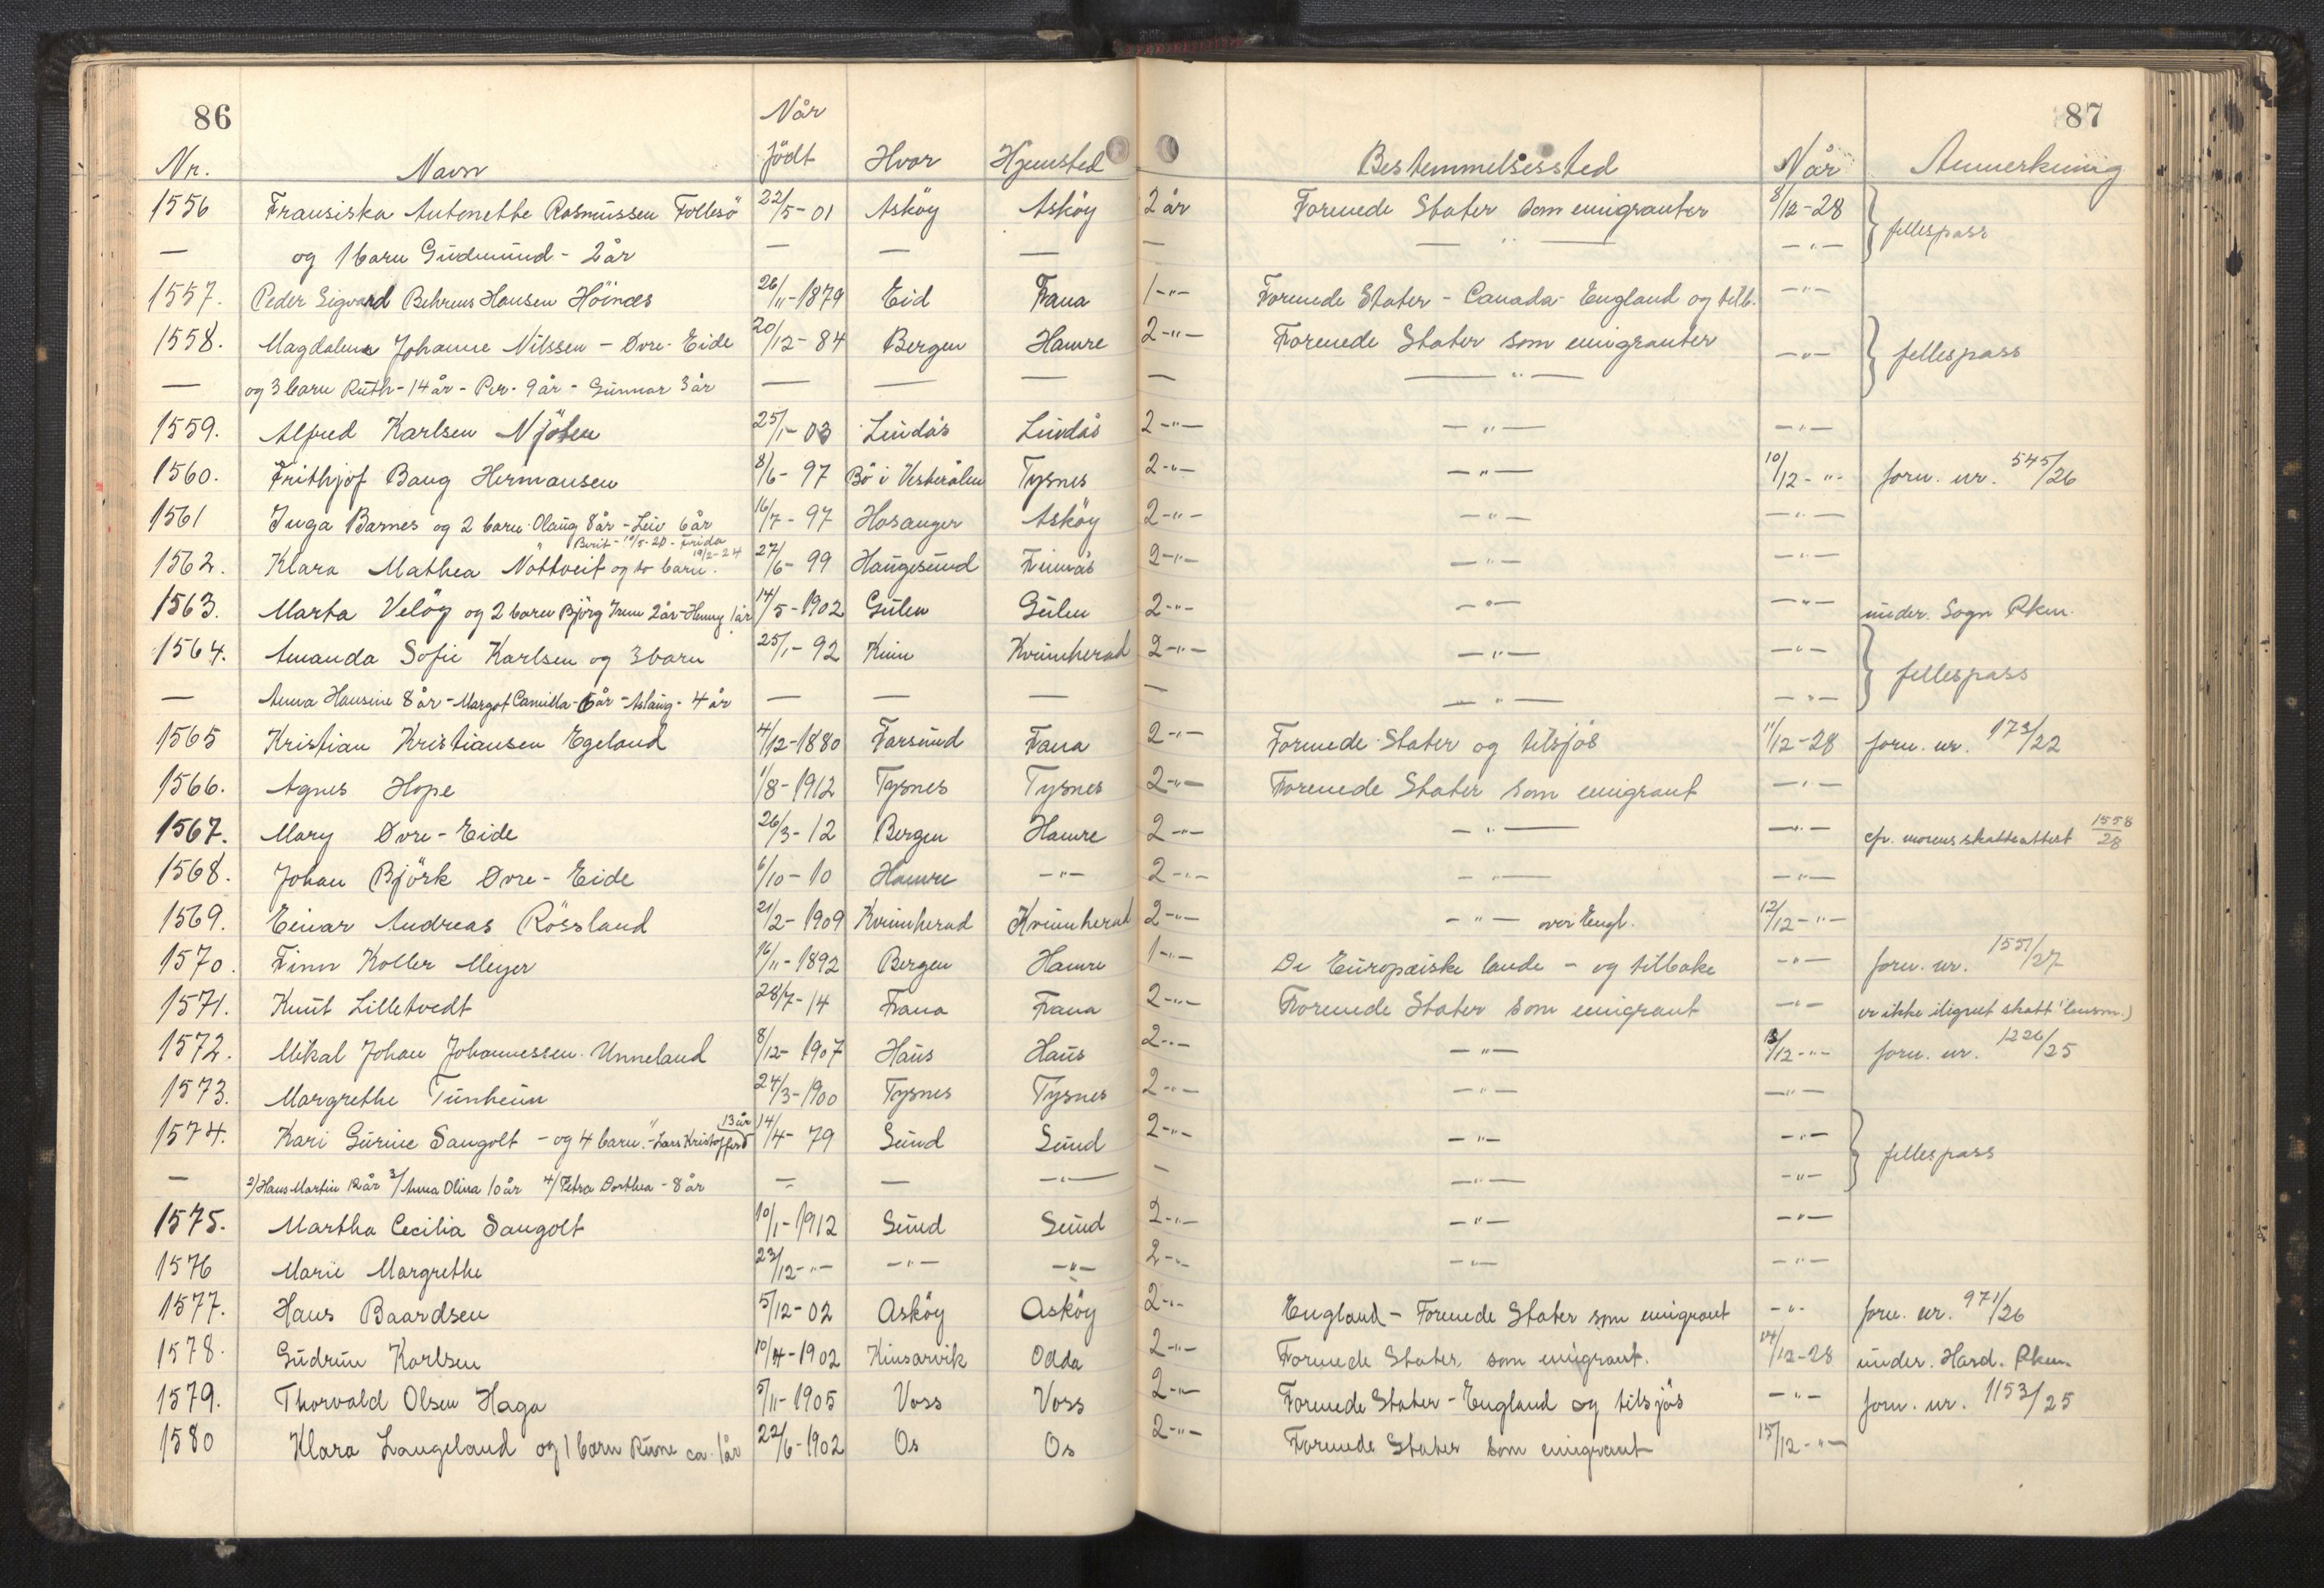 86
87
Når
Nr. Navn födt Hvor Hjemsted Bestemmelsessted Når Anmerkning
1556 Fransiska Antonette Rasmussen Follesö 22/5-01 Asköy Asköy 2 år Forenede Stater som emigranter 8/12-28 } fellespass
— og 1 barn Gudmund - 2 år — — — — — " — — " —
1557. Peder Sigvard Behrens Hansen Höinæs 26/11-1879 Eid Fana 1-"- Forenede Stater - Canada - England og tilb. — " —
1558. Magdalena Johanne Nilssen - Dvre-Eide 20/12-84 Bergen Hamre 2-"- Forenede Stater som emigranter — " — } fellespass
— og 3 barn Ruth-14 år - Per- 9 år - Gunnar 3 år — — — — — " —
1559. Alfred Karlsen Njöten 25/1-03 Lindås Lindås 2-"- — " — — " —
1560. Frithjof Baug Hermansen 8/6-97 Bö i Vesterålen Tysnes 2-"- — " — 10/12-"- forn. nr. 545/26
1561 Inga Barnes og 2 barn Olaug 8 år - Leiv 6 år 16/7-97 Hosanger Asköy 2-"- — " — — " —
Berit - 10/5-20 - Frida 19/2-24
1562. Klara Mathea Nöttveit og to barn. 27/6-99 Haugesund 2-"- — " — — " —
1563. Marta Velöy og 2 barn Björg Irene 2 år - Henny 1 år 14/5-1902 Gulen Gulen 2-"- — " — — " — under. Sogn Rkm.
1564. Amanda Sofie Karlsen og 3 barn 25/1-92 Kinn Kvinnherad 2-"- — " — — " — } fellespass
— Anna Hansine 8 år - Margot Camilla - 6 år - Aslaug - 4 år — — — — — " — — " —
1565 Kristian Kristiansen Egeland 4/12-1880 Farsund Fana 2-"- Forenede Stater og tilsjös 11/12-28 forn. nr. 173/22
1566. Agnes Hope 1/8-1912 Tysnes Tysnes 2-"- Forenede Stater som emigrant — " —
1567. Mary Dvre-Eide 26/3-12 Bergen Hamre 2-"- — " — — " — cfr. morens skatteattest 1558/28
1568. Johan Björk Dvre-Eide 6/10-10 Hamre — " — 2-"- — " — — " —
1569. Einar Andreas Rössland 21/2-1909 Kvinnherad Kvinnherad 2-"- — " — over Engl. 12/12-"-
1570. Finn Koller Meyer 16/11-1892 Bergen Hamre 1-"- De Europæiske lande - og tilbake — " — forn. nr. 1551/27
1571. Knut Lilletvedt 28/7-14 Fana Fana 2-"- Forenede Stater som emigrant — " — er ikke ilignet skatt (lensm.)
1572. Mikal Johan Johannessen Unneland 8/12-1907 Haus Haus 2-"- — " — 13/12-"- forn. nr. 1226/25
1573. Margrethe Tunheim 24/3-1900 Tysnes Tysnes 2-"- — " — — " —
1574. Kari Gurine Sangolt - og 4 barn. - Lars Kristoffer 13 år 14/4-79 Sund Sund 2-"- — " — — " — } fellespass
— 2/ Hans Martin 12 år 3/ Anna Olina 10 år 4/ Petra Dorthea - 8 år — — — " — — — " — — " —
1575. Martha Cecilia Sangolt 10/1-1912 Sund Sund 2-"- — " — — " —
1576 Marie Margrethe 23/12-"- — " — — " — 2-"- — " — — " —
1577. Hans Baardsen 5/12-02 Asköy Asköy 2-"- England - Forenede Stater som emigrant — " — forn. nr. 971/26
1578. Gudrun Karlsen 10/4-1902 Kinsarvik Odda 2-"- Forenede Stater, som emigrant. 14/12-28 under. Hard. Rkm.
1579. Thorvald Olsen Haga 5/11-1905 Voss Voss 2-"- Forenede Stater - England og tilsjös — " — forn. nr. 1153/25
1580 Klara Langeland og 1 barn Rune ca. 1 år 22/6-1902 Os Os 2-"- Forenede Stater som emigrant 15/12-"-